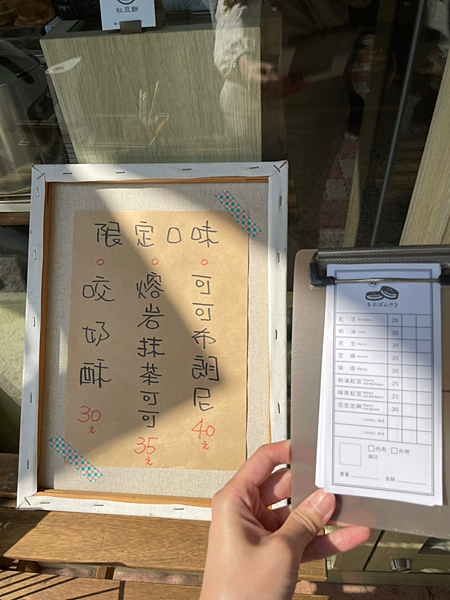 紅豆餅
限定口味
可可布朗尼
40元
熔岩抹茶可可
35元
咬奶酥
30元
おおばんやき
紅豆 20
奶油 20
花生 20
芝麻 20
抹茶 20
奶油紅豆 25
抹茶紅豆 25
花生芝麻 30
內用 外帶
備註
數量 金額